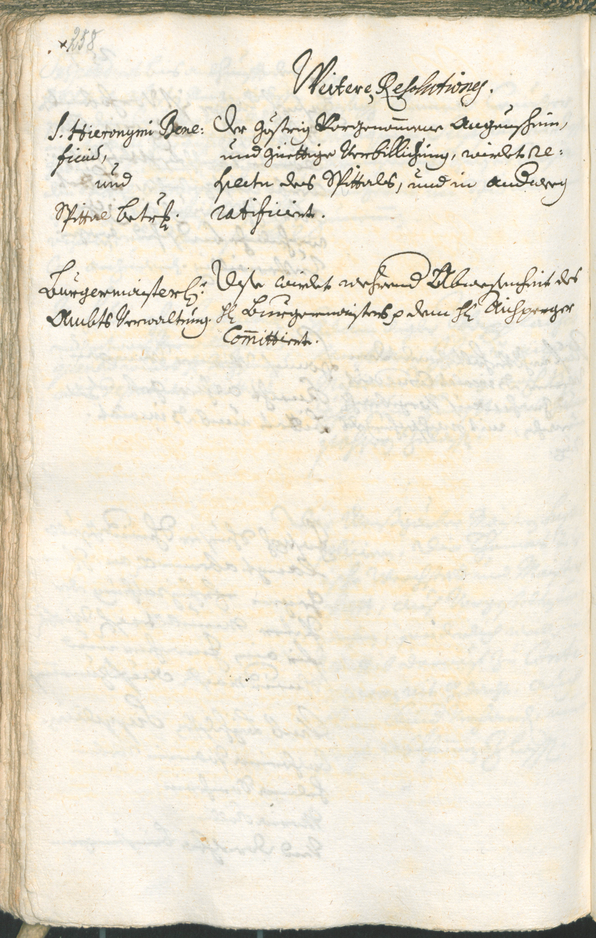 258
Weitere Resolutiones.
S. Hieronymi Bene:
ficium,
und
Spittal betrf.
Der gestrig Vorgenommene Augenschein,
und güettige Verbillichung, wirdet re:
spectu des Spittals, und in andweeg
ratificiert.
Burgermaisterl:
Ambts Verwaltung.
Dise wirdet wehrend Abwesenheit des
H: Burgermaisters p dem H:
Committiert.